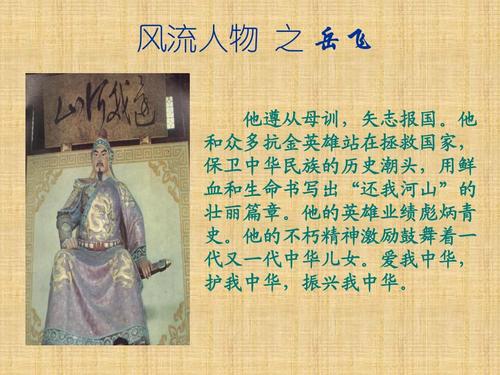 风流人物 之 岳飞
還我河山
他遵从母训，矢志报国。他
和众多抗金英雄站在拯救国家，
保卫中华民族的历史潮头，用鲜
血和生命书写出“还我河山”的
壮丽篇章。他的英雄业绩彪炳青
史。他的不朽精神激励鼓舞着一
代又一代中华儿女。爱我中华，
护我中华，振兴我中华。